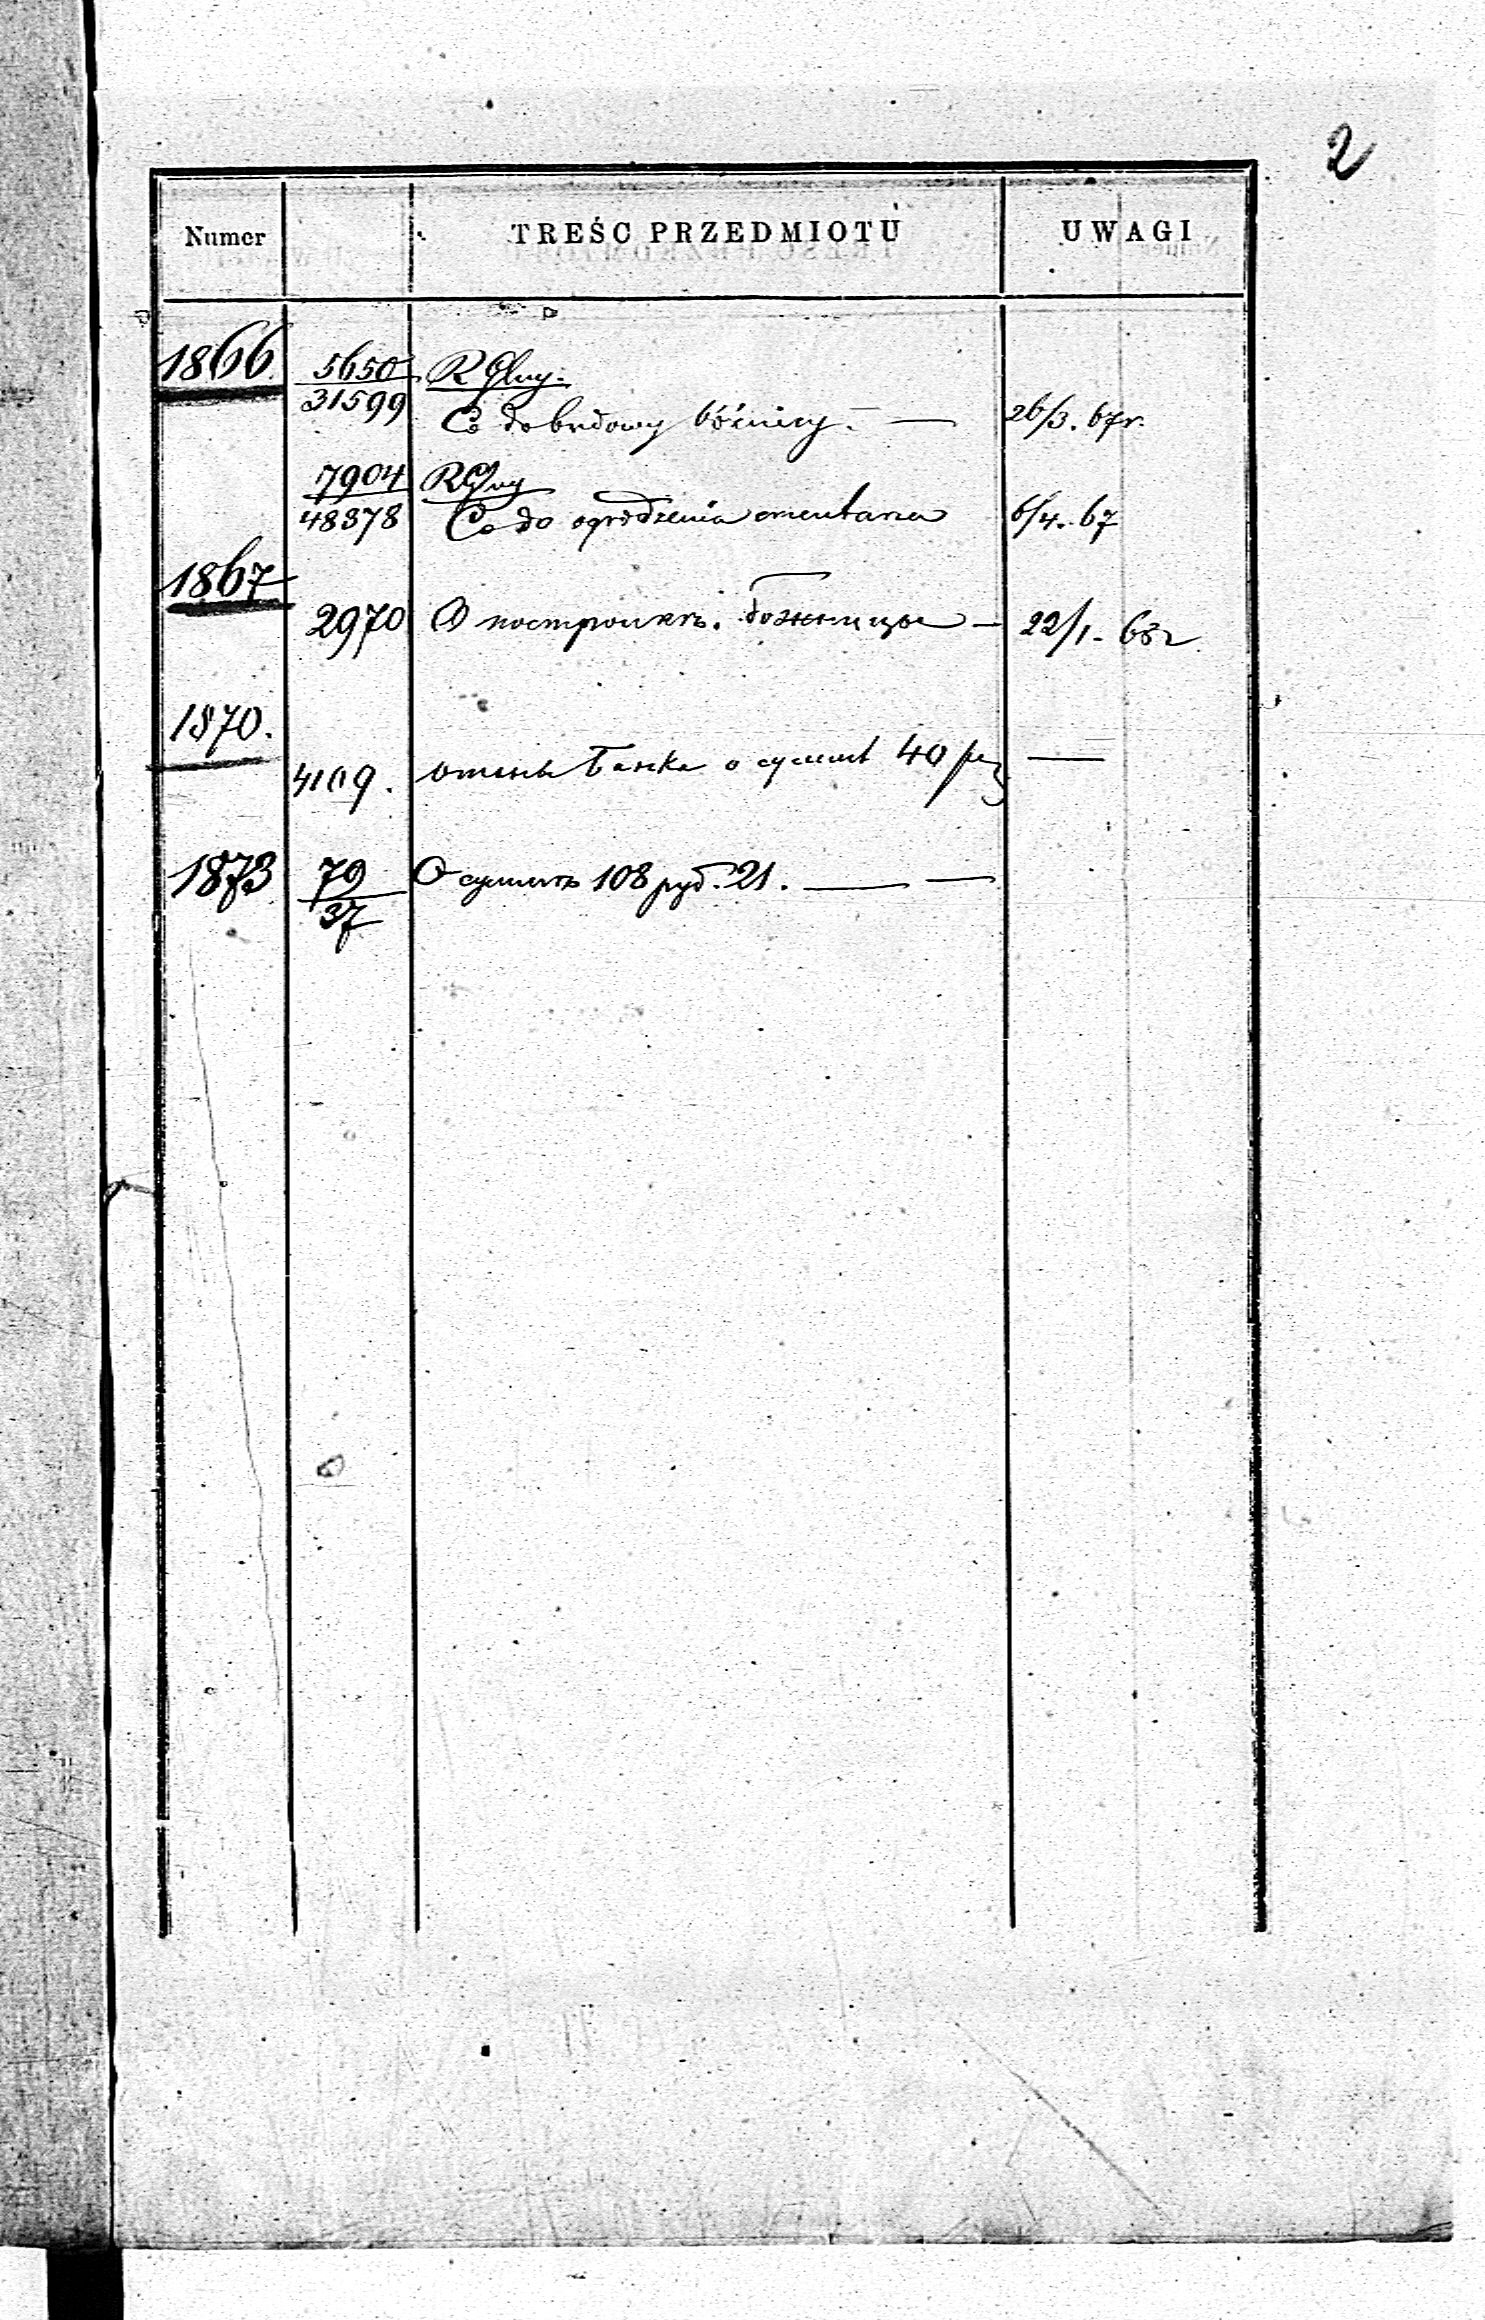 2
Numer TREŚC PRZEDMIOTU UWAGI
1866 5650 R Gluy.
31599 Co do budowy bóżnicy. — 26/3. 67r.
7904 RGluy
48378 Co do ogrodzenia cmentarza 6/4. 67
1867
2970 О постройкѣ божницы — 22/1. 68г
1870.
4109. Банка о суммѣ 40 —
1873 79 О суммѣ 108 руб. 21. — —
37